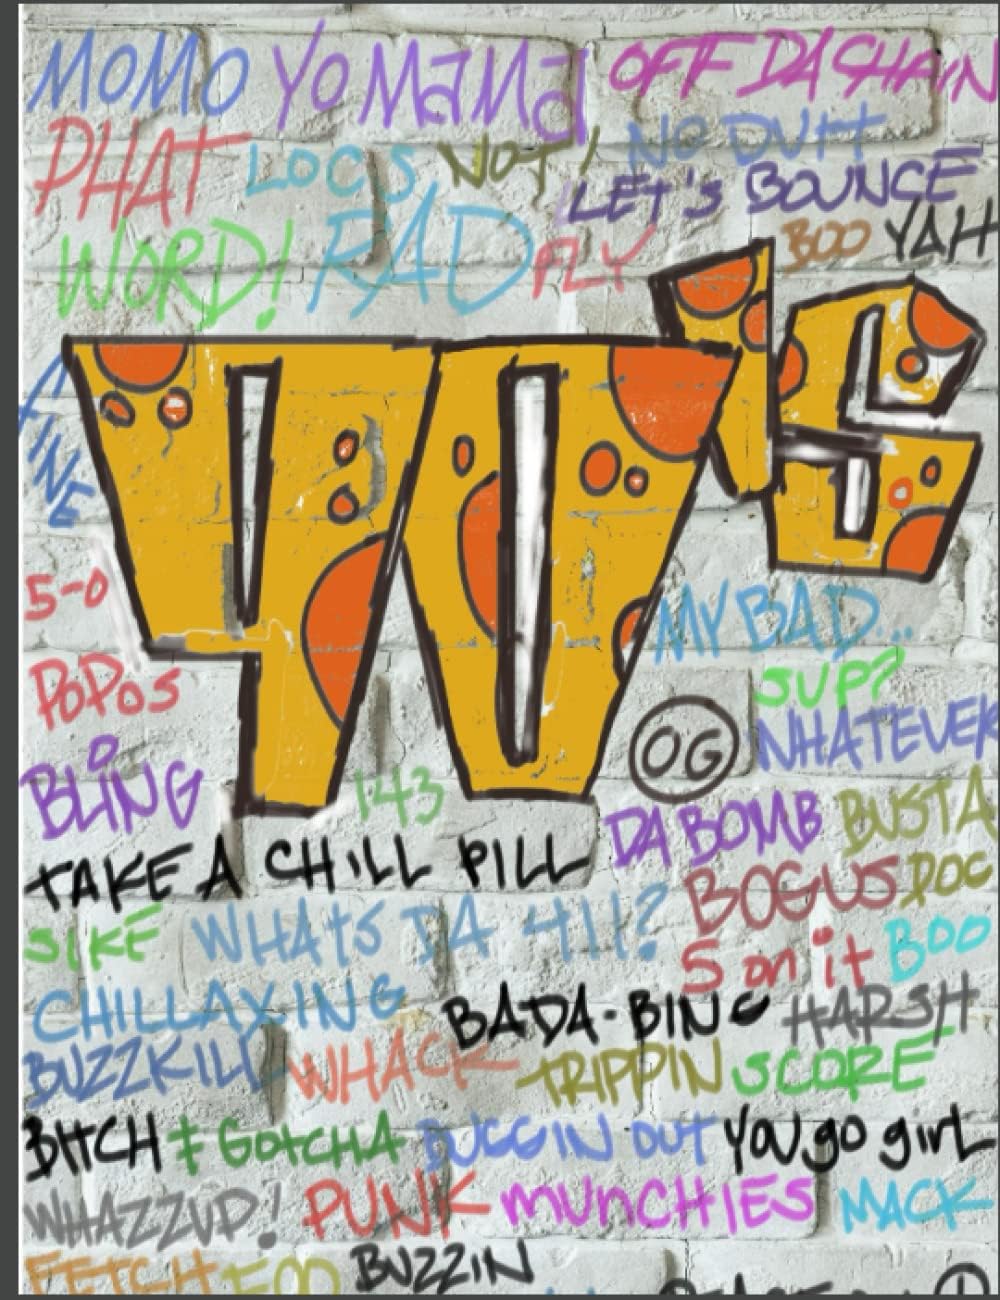 MOMO YO MaMa OFF DA CHAIN
PHAT LOCS NOT! NO DUH
LET'S BOUNCE
WORD! RAD FLY BOO YAH
90's
FINE
5-0
MY BAD...
POPOS SUP?
OG WHATEVER
BLiNG 143
DA BOMB BUSTA
TAKE A CHiLL PiLL
BOGUS DOG
SIKE WHAtS DA 411?
5 on it BOO
CHILLAXING BADA-BING HARSH
BUZZKILL WHACK TRIPPIN SCORE
BItCH GOtCHA BUGGIN OUT YOU go girL
WHAZZUP! PUNK MUnCHIES MACK
FETCH BUZZIN